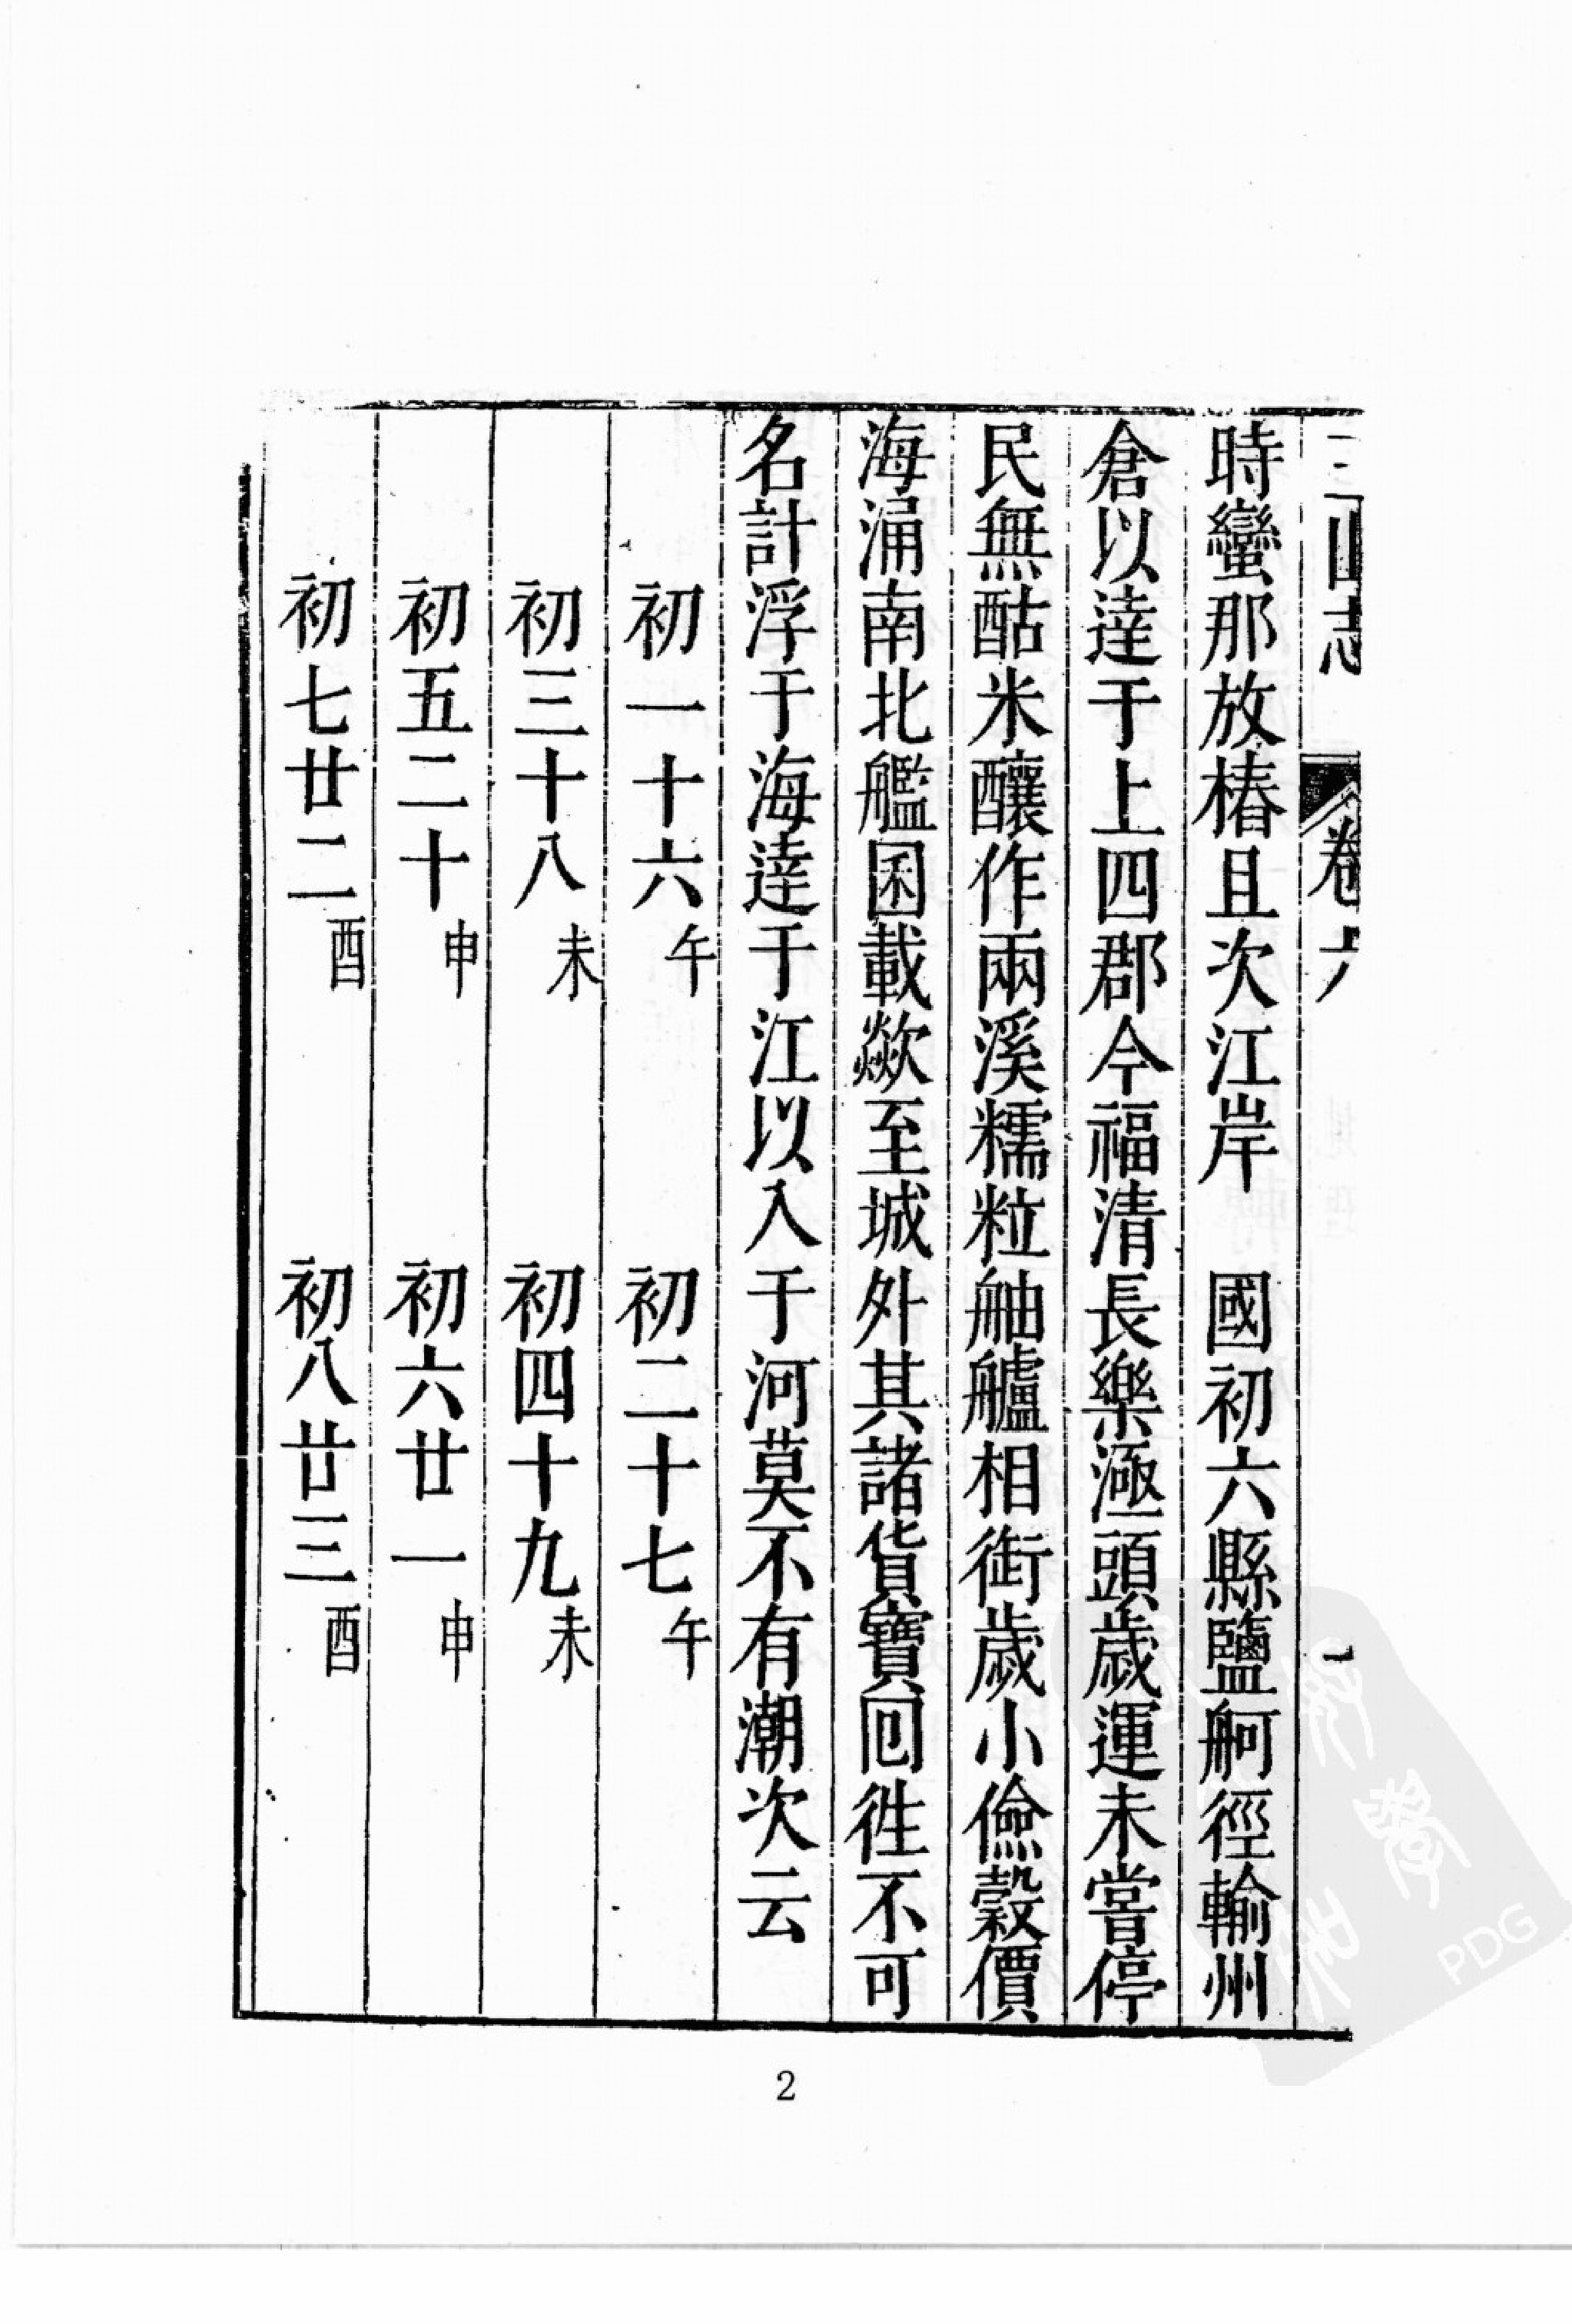 三山志 卷六 一
時蠻那放椿且次江岸 國初六縣鹽舸徑輸州
倉以達于上四郡今福清長樂極頭歲運未嘗停
民無酤米釀作兩溪糯粒舳艫相銜歲小儉穀價
海涌南北艦囷載歘至城外其諸貨寶回徃不可
名計浮于海達于江以入于河莫不有潮次云
初一十六午 初二十七午
初三十八未 初四十九未
初五二十申 初六廿一申
初七廿二酉 初八廿三酉
2
PDG